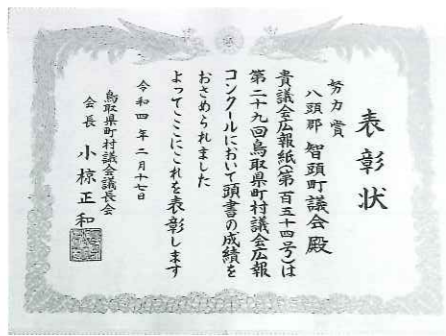 表彰状
努力賞
八頭郡 智頭町議会 殿
貴議会広報紙(第百五十四号)は
第二十九回鳥取県町村議会広報
コンクールにおいて頭書の成績を
おさめられました
よってここにこれを表彰します
令和四年二月十七日
鳥取県町村議会議長会
会長 小椋正和